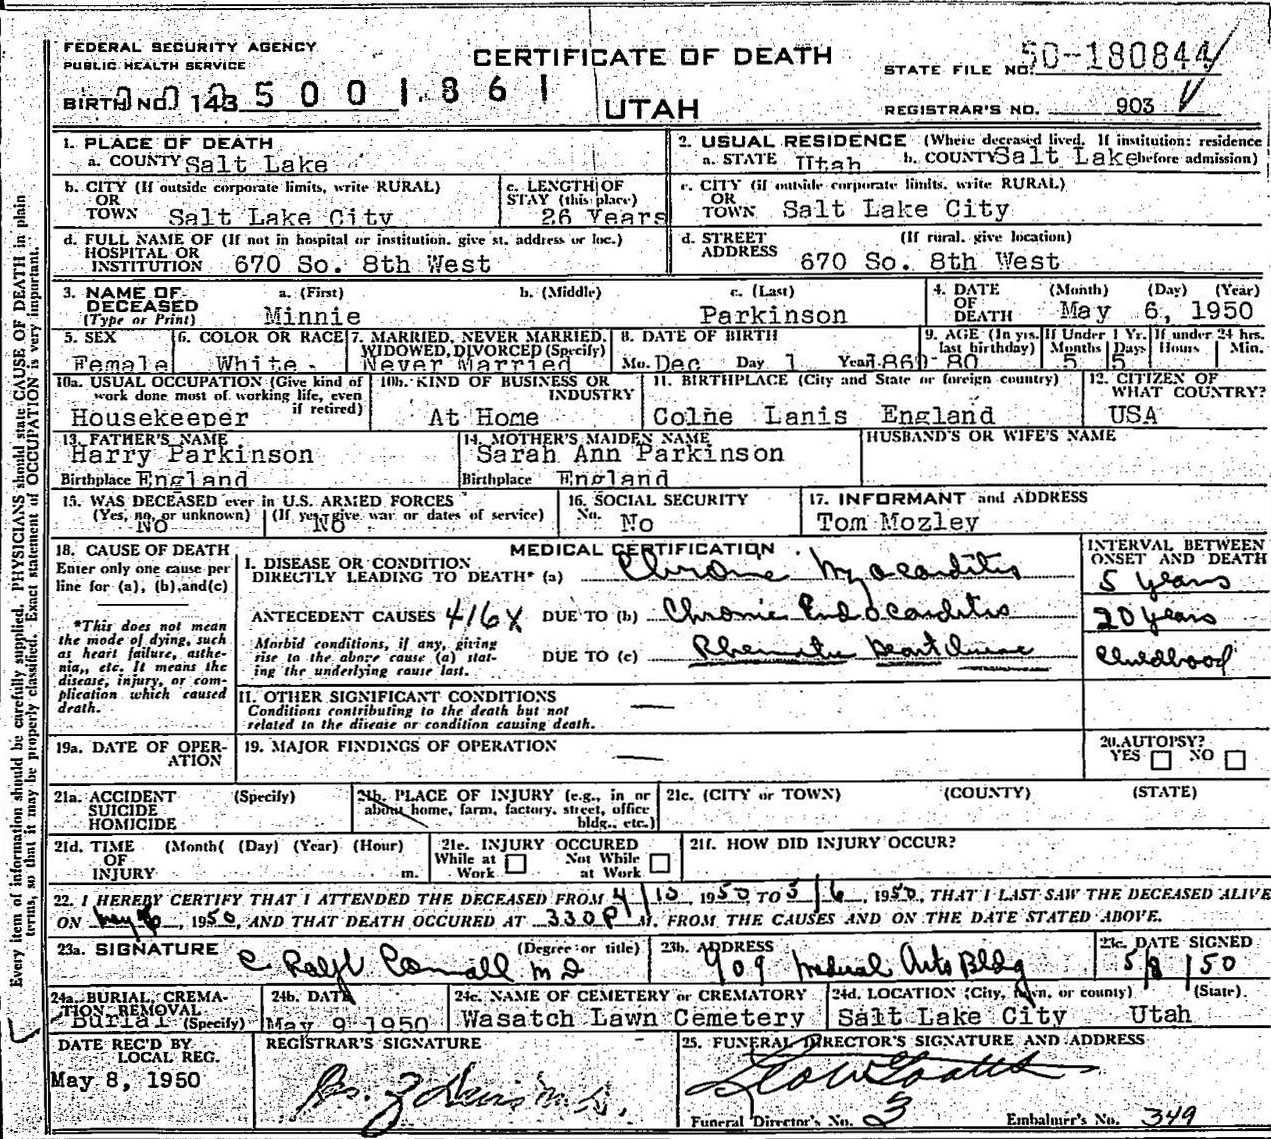 FEDERAL SECURITY AGENCY
PUBLIC HEALTH SERVICE
CERTIFICATE OF DEATH
STATE FILE NO. 50-180844
BIRTH NO. 143
005001861
UTAH
REGISTRAR'S NO. 903
1. PLACE OF DEATH
a. COUNTY Salt Lake
2. USUAL RESIDENCE (Where deceased lived. If institution: residence
a. STATE Utah b. COUNTY Salt Lake before admission)
b. CITY (If outside corporate limits, write RURAL)
OR
TOWN Salt Lake City
c. LENGTH OF
STAY (this place)
26 Years
c. CITY (if outside corporate limits, write RURAL)
OR
TOWN Salt Lake City
d. FULL NAME OF (If not in hospital or institution, give st. address or loc.)
HOSPITAL OR
INSTITUTION 670 So. 8th West
d. STREET (If rural, give location)
ADDRESS 670 So. 8th West
3. NAME OF DECEASED
(Type or Print)
a. (First) b. (Middle) c. (Last)
Minnie Parkinson
4. DATE OF DEATH (Month) (Day) (Year)
May 6, 1950
5. SEX
Female
6. COLOR OR RACE
White
7. MARRIED, NEVER MARRIED,
WIDOWED, DIVORCED (Specify)
Never Married
8. DATE OF BIRTH
Mo. Dec Day 1 Year 1869
9. AGE (In yrs. last birthday)
80
If Under 1 Yr.
Months Days
5 5
If under 24 hrs.
Hours Min.
10a. USUAL OCCUPATION (Give kind of
work done most of working life, even
if retired)
Housekeeper
10b. KIND OF BUSINESS OR
INDUSTRY
At Home
11. BIRTHPLACE (City and State or foreign country)
Colne Lanis England
12. CITIZEN OF
WHAT COUNTRY?
USA
13. FATHER'S NAME
Harry Parkinson
Birthplace England
14. MOTHER'S MAIDEN NAME
Sarah Ann Parkinson
Birthplace England
HUSBAND'S OR WIFE'S NAME
15. WAS DECEASED ever in U.S. ARMED FORCES
(Yes, no, or unknown) (If yes, give war or dates of service)
No No
16. SOCIAL SECURITY
No. No
17. INFORMANT and ADDRESS
Tom Mozley
18. CAUSE OF DEATH
Enter only one cause per
line for (a), (b), and (c)
*This does not mean
the mode of dying, such
as heart failure, asthe-
nia,, etc. It means the
disease, injury, or com-
plication which caused
death.
MEDICAL CERTIFICATION
INTERVAL BETWEEN
ONSET AND DEATH
I. DISEASE OR CONDITION
DIRECTLY LEADING TO DEATH* (a) Chronic Myocarditis
5 years
ANTECEDENT CAUSES 416X DUE TO (b) Chronic Endocarditis
20 years
Morbid conditions, if any, giving
rise to the above cause (a) stat-
ing the underlying cause last.
DUE TO (c) Rheumatic heart disease
Childhood
II. OTHER SIGNIFICANT CONDITIONS
Conditions contributing to the death but not
related to the disease or condition causing death.
19a. DATE OF OPER-
ATION
19. MAJOR FINDINGS OF OPERATION
20. AUTOPSY?
YES NO
21a. ACCIDENT (Specify)
SUICIDE
HOMICIDE
21b. PLACE OF INJURY (e.g., in or
about home, farm, factory, street, office
bldg., etc.)
21c. (CITY or TOWN) (COUNTY) (STATE)
21d. TIME (Month( (Day) (Year) (Hour)
OF
INJURY m.
21e. INJURY OCCURED
While at Work Not While at Work
21f. HOW DID INJURY OCCUR?
22. I HEREBY CERTIFY THAT I ATTENDED THE DECEASED FROM 4/10 1950 TO 5/6, 1950, THAT I LAST SAW THE DECEASED ALIVE
ON May 6, 1950, AND THAT DEATH OCCURED AT 330 P M. FROM THE CAUSES AND ON THE DATE STATED ABOVE.
23a. SIGNATURE (Degree or title)
C Ralph MD
23b. ADDRESS
909 Medical Arts Bldg
23c. DATE SIGNED
5/8/50
24a. BURIAL, CREMA-
TION REMOVAL
Burial (Specify)
24b. DATE
May 9 1950
24c. NAME OF CEMETERY or CREMATORY
Wasatch Lawn Cemetery
24d. LOCATION (City, town, or county) (State)
Salt Lake City Utah
DATE REC'D BY
LOCAL REG.
May 8, 1950
REGISTRAR'S SIGNATURE
25. FUNERAL DIRECTOR'S SIGNATURE AND ADDRESS
Funeral Director's No. 3 Embalmer's No. 349
Every item of information should be carefully supplied. PHYSICIANS should state CAUSE OF DEATH in plain
terms, so that it may be properly classified. Exact statement of OCCUPATION is very important.